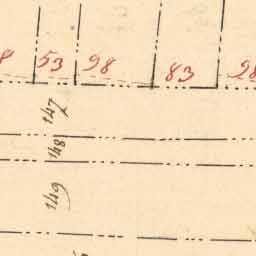 53 98 83 98
147
148
149